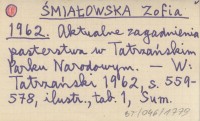 ŚMIAŁOWSKA Zofia
1962. Aktualne zagadnienia
pasterstwa w Tatrzańskim
Parku Narodowym. — W:
Tatrzański 1962, s. 559-
578, ilustr., tab. 1, Sum.